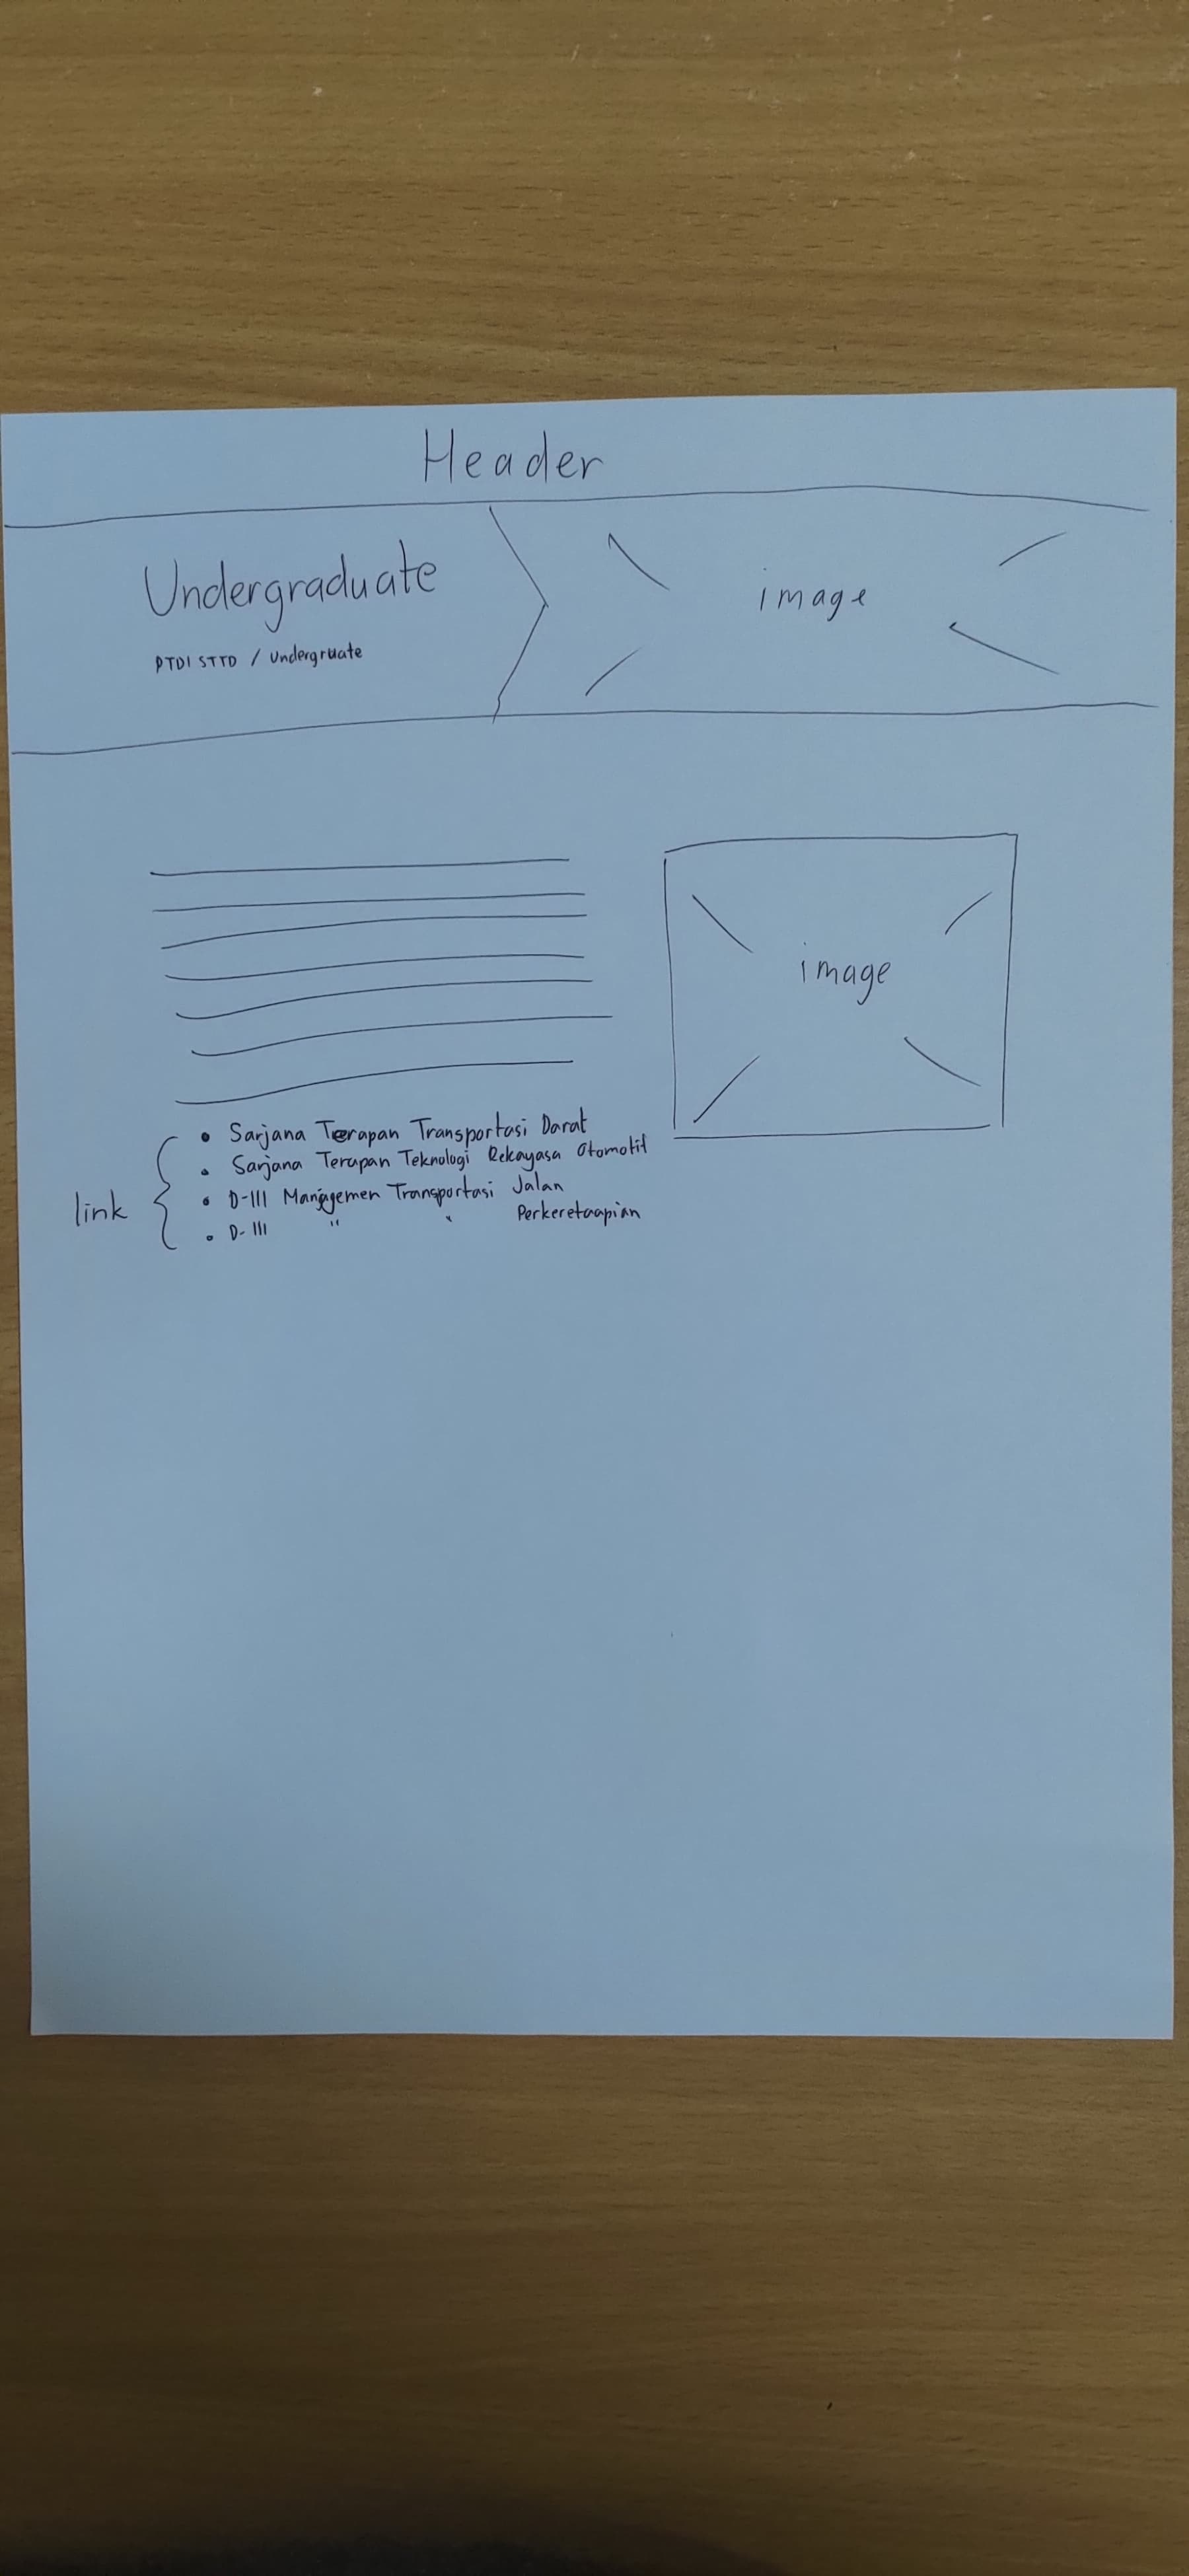 Header
Undergraduate
PTDI STTD / Undergruate
image
image
• Sarjana Terapan Transportasi Darat
• Sarjana Terapan Teknologi Rekayasa Otomotif
• D-III Manajemen Transportasi Jalan
• D-III " " Perkeretaapian
link